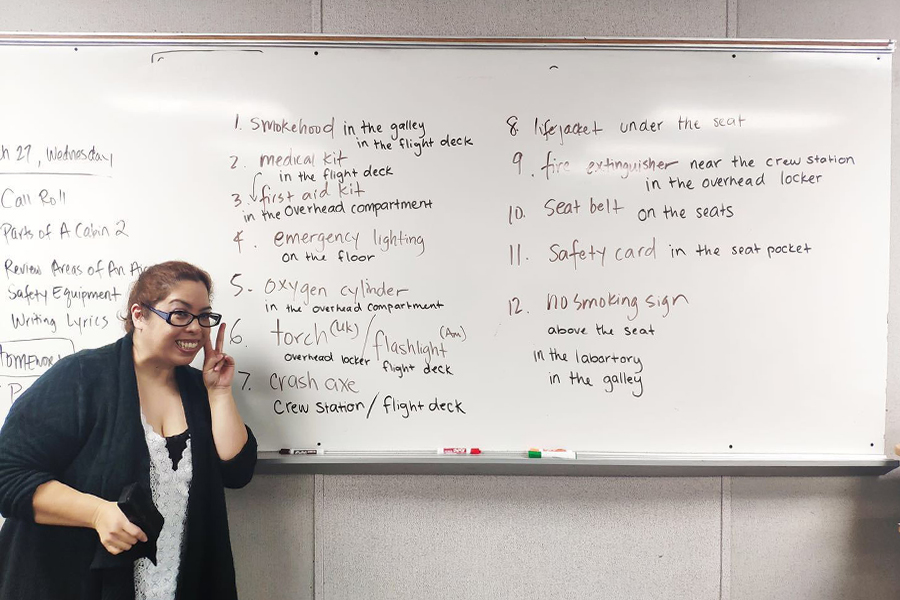 27, Wednesday
Call Roll
Parts of A Cabin 2
Review Areas of An
Safety Equipment
Writing Lyrics
1. smokehood in the galley
in the flight deck
2. medical kit
in the flight deck
3. first aid kit
in the overhead compartment
4. emergency lighting
on the floor
5. oxygen cylinder
in the overhead compartment
6. torch (UK) / flashlight (Am)
overhead locker flight deck
7. crash axe
Crew Station / flight deck
8. lifejacket under the seat
9. fire extinguisher near the crew station
in the overhead locker
10. Seat belt on the seats
11. Safety card in the seat pocket
12. no smoking sign
above the seat
in the labartory
in the galley